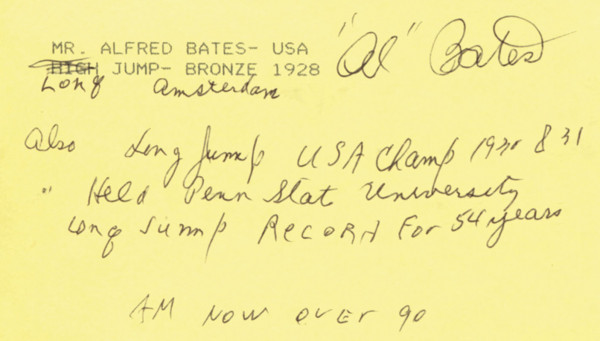 MR. ALFRED BATES- USA "Al" Bates
HIGH JUMP- BRONZE 1928
Long Amsterdam
Also Long Jump USA Champ 1930 & 31
" Held Penn Stat University
Long Jump RECORD For 54 years
AM NOW OVER 90